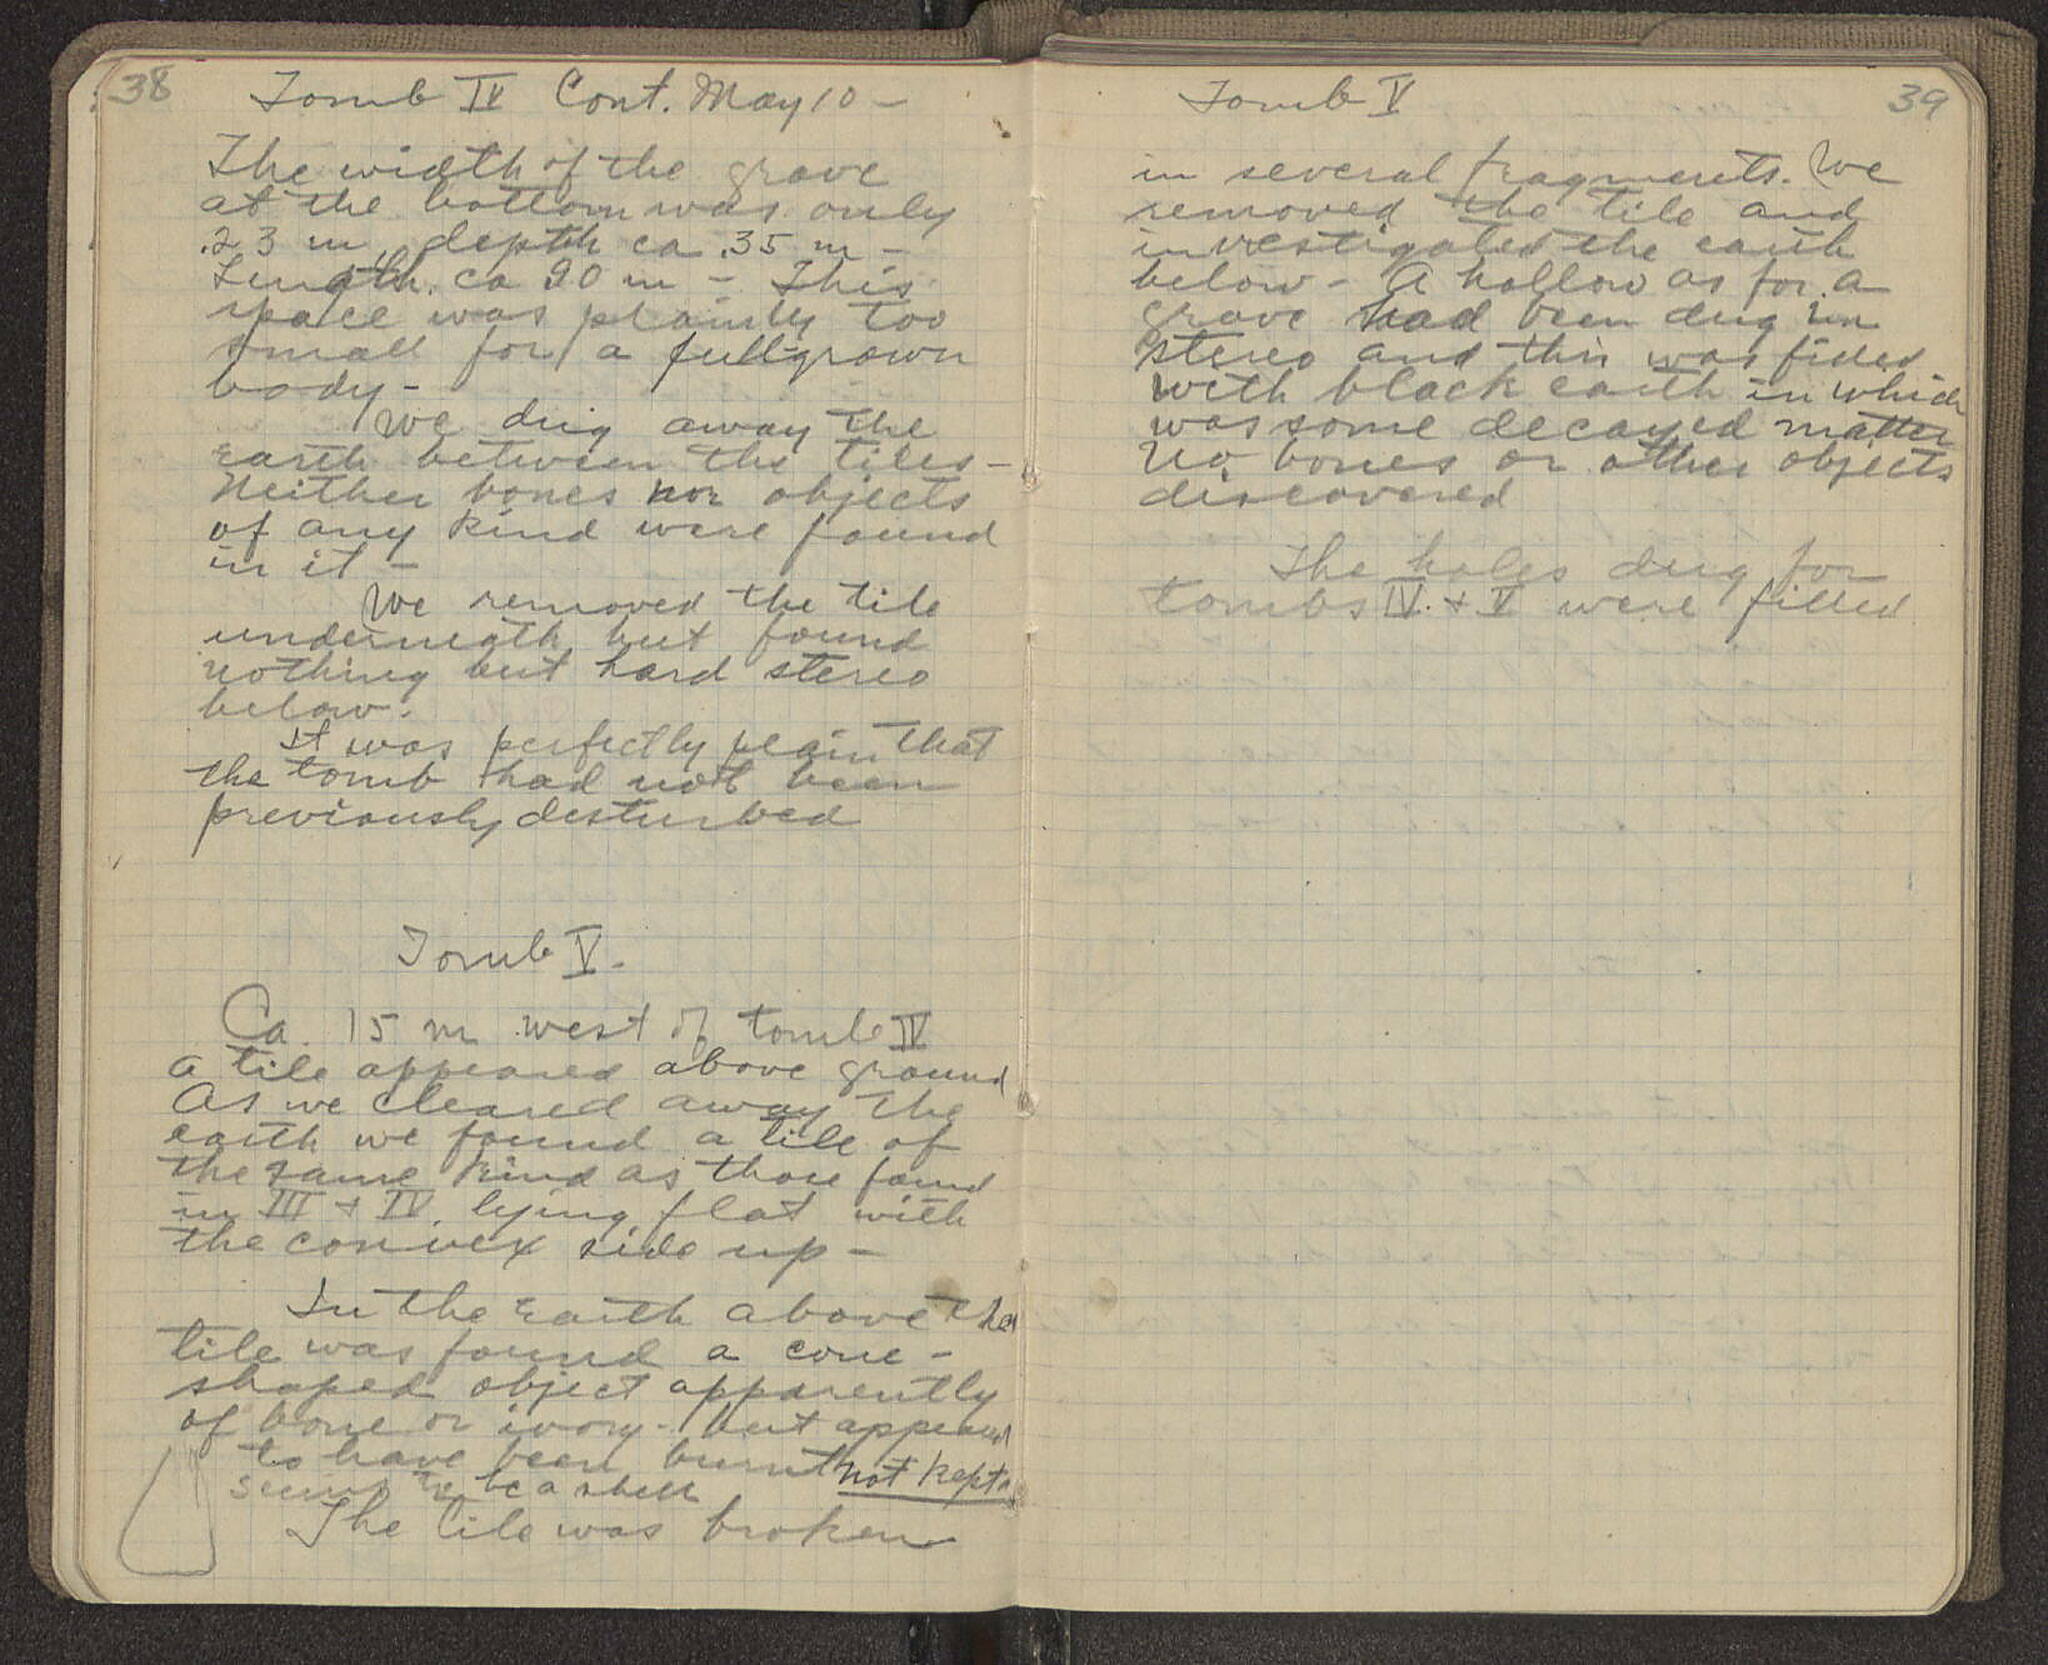 38
Tomb IV Cont. May 10 -
The width of the grave
at the bottom was only
.23 m, depth ca .35 m -
Length. ca 90 m - This
space was plainly too
small for a fullgrown
body -
We dug away the
earth between the tiles -
Neither bones nor objects
of any kind were found
in it -
We removed the tile
underneath but found
nothing but hard stereo
below.
It was perfectly plain that
the tomb had not been
previously desturbed
Tomb V.
Ca. 15 m west of tomb IV
a tile appeared above ground
As we cleared away the
earth we found a tile of
the same kind as those found
in III + IV, lying flat with
the convex side up -
In the earth above the
tile was found a cone -
shaped object apparently
of bone or ivory - but appeared
to have been burnt not kept
seems to be a shell
The tile was broken
Tomb V
39
in several fragments. We
removed the tile and
investigated the earth
below - A hollow as for a
grave had been dug in
stereo and this was filled
with black earth in which
was some decayed matter
No bones or other objects
discovered
The holes dug for
tombs IV. + V were filled